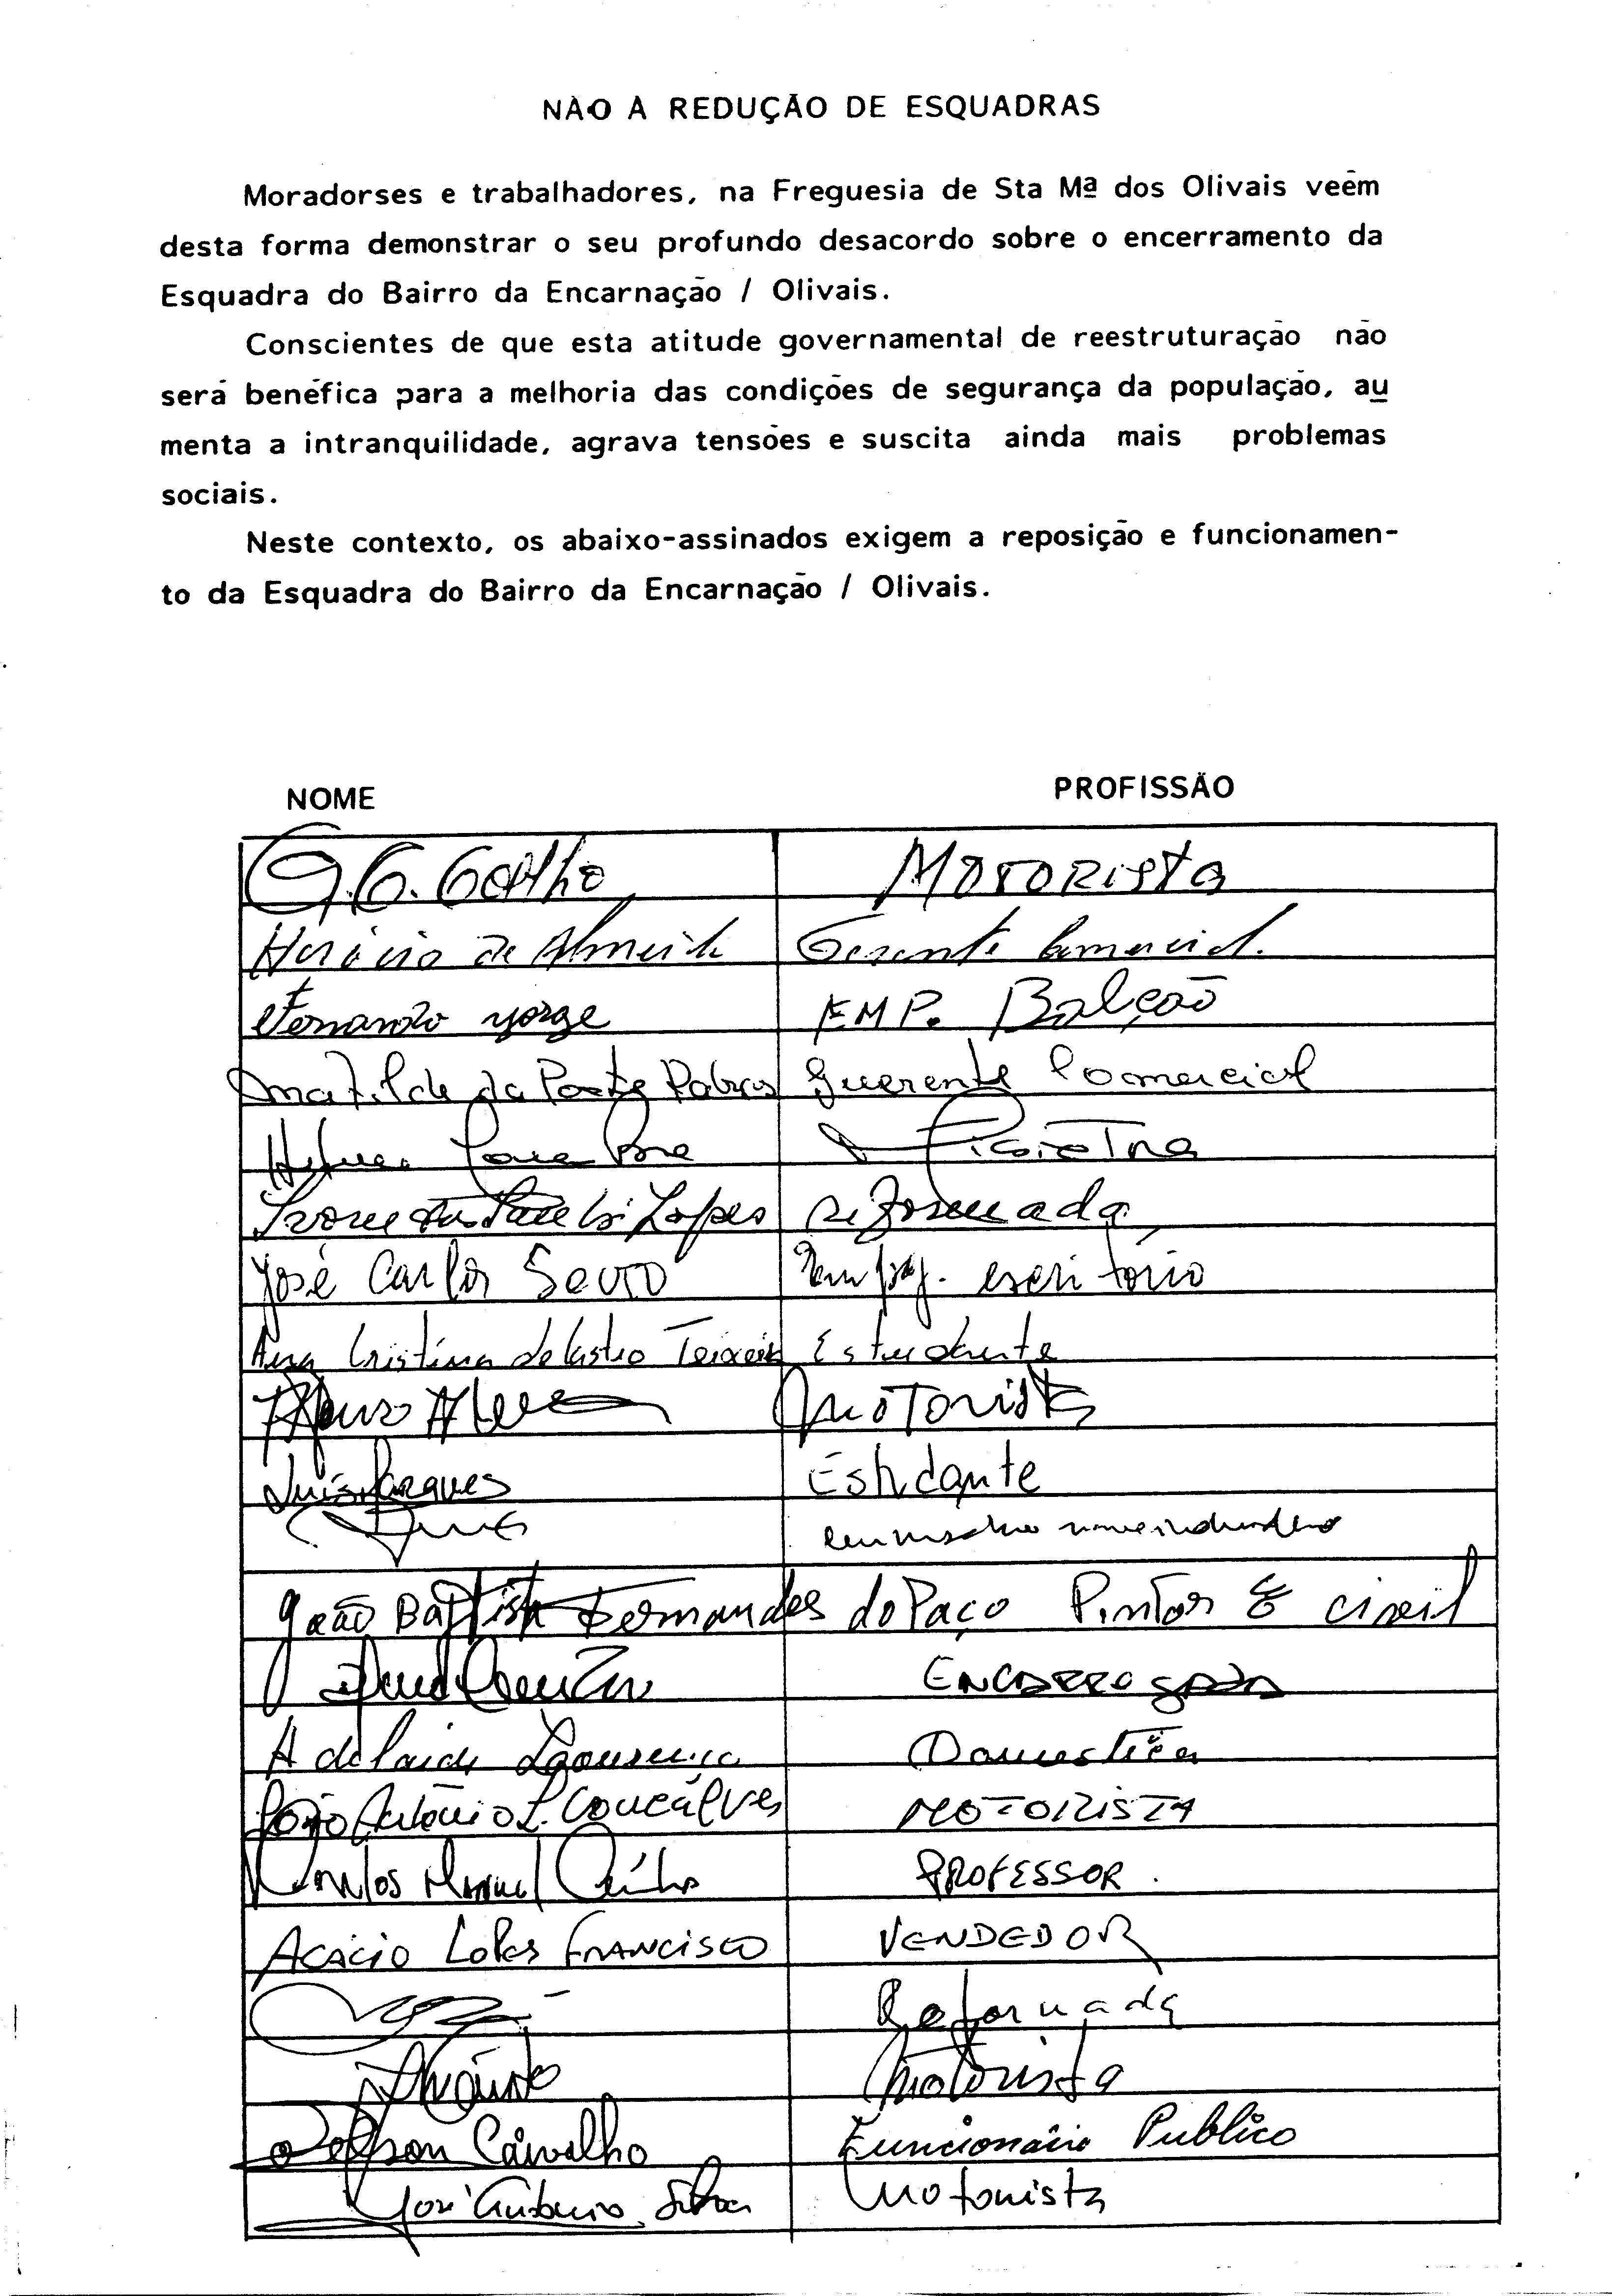 NÃO A REDUÇÃO DE ESQUADRAS
Moradorses e trabalhadores, na Freguesia de Sta Mª dos Olivais veêm
desta forma demonstrar o seu profundo desacordo sobre o encerramento da
Esquadra do Bairro da Encarnação / Olivais.
Conscientes de que esta atitude governamental de reestruturação não
será benéfica para a melhoria das condições de segurança da população, au
menta a intranquilidade, agrava tensões e suscita ainda mais problemas
sociais.
Neste contexto, os abaixo-assinados exigem a reposição e funcionamen-
to da Esquadra do Bairro da Encarnação / Olivais.
NOME PROFISSÃO
Coelho Motorista
Horácio de Almeida Gerente Comercial.
Fernando Jorge EMP. Balcão
Matilde da Guerente Comercial
Lopes Reformada
José Carlos Souto escritório
Ana Cristina de Castro Teixeira Estudante
Motorista
Luís Marques Estudante
João Baptista Fernandes do Paço Pintor civil
Encarregado
Adelaide Lourenço Domestica
João António L. Goncalves MOTORISTA
Carlos Manuel PROFESSOR.
Acácio Lopes Francisco VENDEDOR
Reformada
Motorista
Carvalho Funcionário Publico
José António Silva Motorista